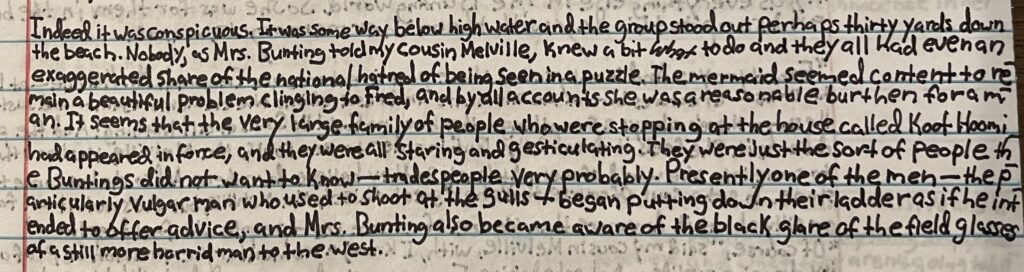 Indeed it was conspicuous. It was some way below high water and the group stood out perhaps thirty yards down
the beach. Nobody, as Mrs. Bunting told my cousin Melville, knew a bit to do and they all had even an
exaggerated share of the national hatred of being seen in a puzzle. The mermaid seemed content to re-
main a beautiful problem clinging to Fred, and by all accounts she was a reasonable burthen for a m-
an. It seems that the very large family of people who were stopping at the house called Koot Hoomi
had appeared in force, and they were all staring and gesticulating. They were just the sort of people th-
e Buntings did not want to know—tradespeople very probably. Presently one of the men—the p-
articularly vulgar man who used to shoot at the gulls—began putting down their ladder as if he int-
ended to offer advice, and Mrs. Bunting also became aware of the black glare of the field glasses
of a still more horrid man to the west.